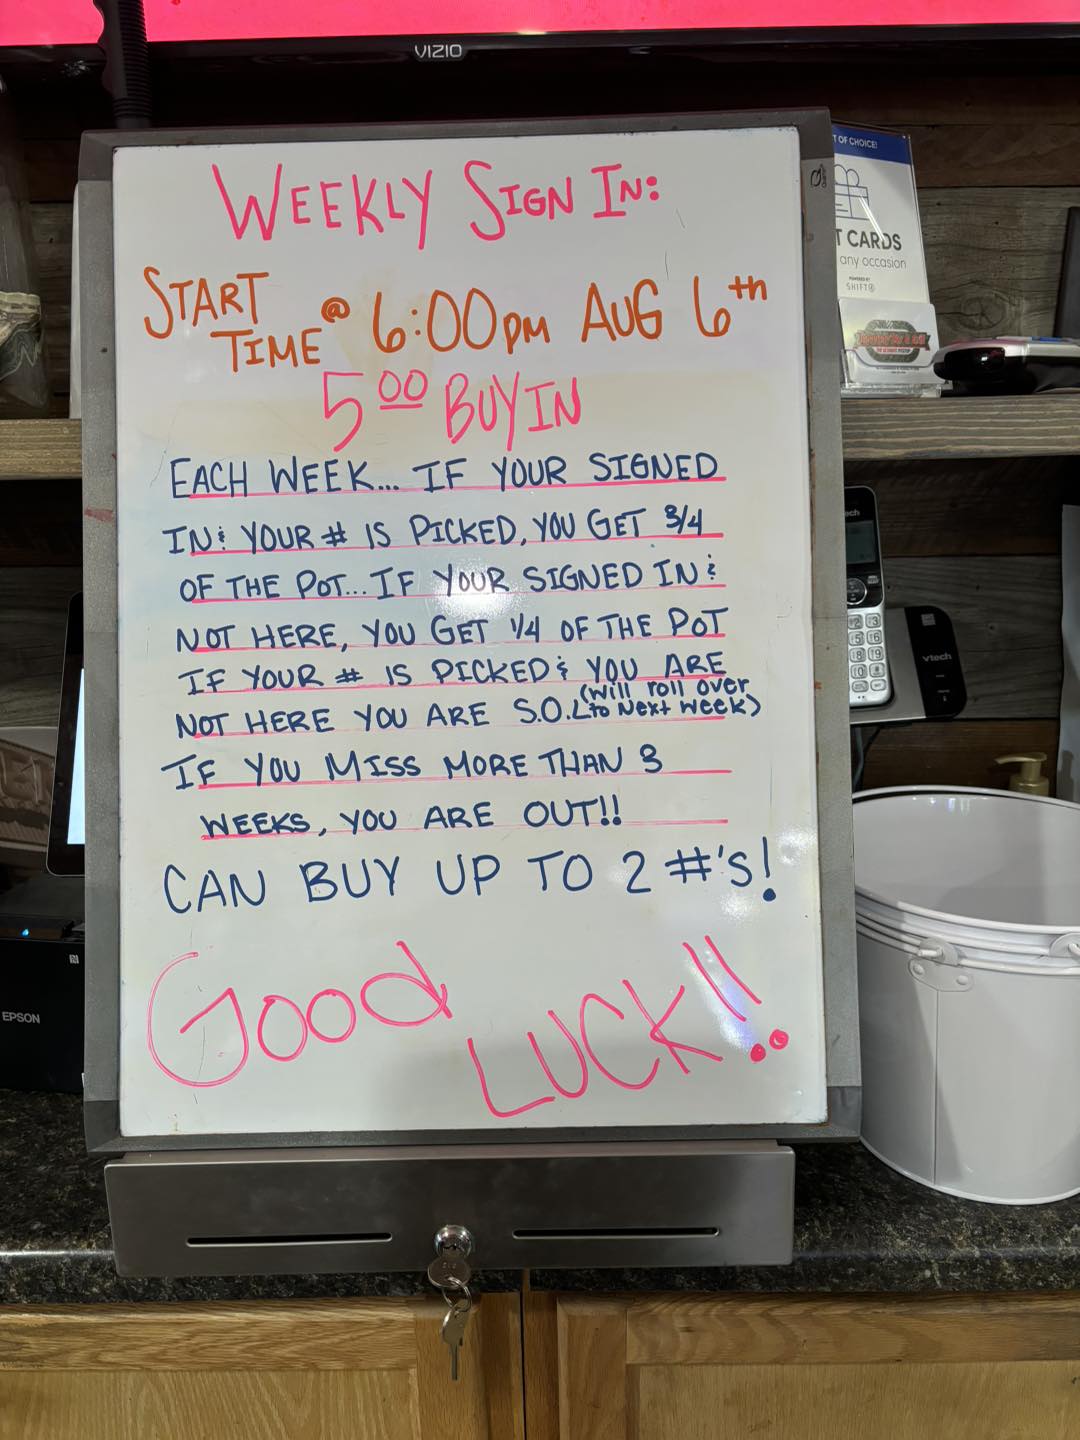 VIZIO
WEEKLY SIGN IN:
START TIME @ 6:00PM AUG 6th
5 00 BUY IN
EACH WEEK... IF YOUR SIGNED
IN & YOUR # IS PICKED, YOU GET 3/4
OF THE POT... IF YOUR SIGNED IN &
NOT HERE, YOU GET 1/4 OF THE POT
IF YOUR # IS PICKED & YOU ARE
NOT HERE YOU ARE S.O.L (will roll over to Next week)
IF YOU MISS MORE THAN 3
WEEKS, YOU ARE OUT!!
CAN BUY UP TO 2 #'S!
GOOD LUCK!!
T OF CHOICE!
T CARDS
any occasion
POWERED BY
SHIFT4
vtech
vtech
EPSON